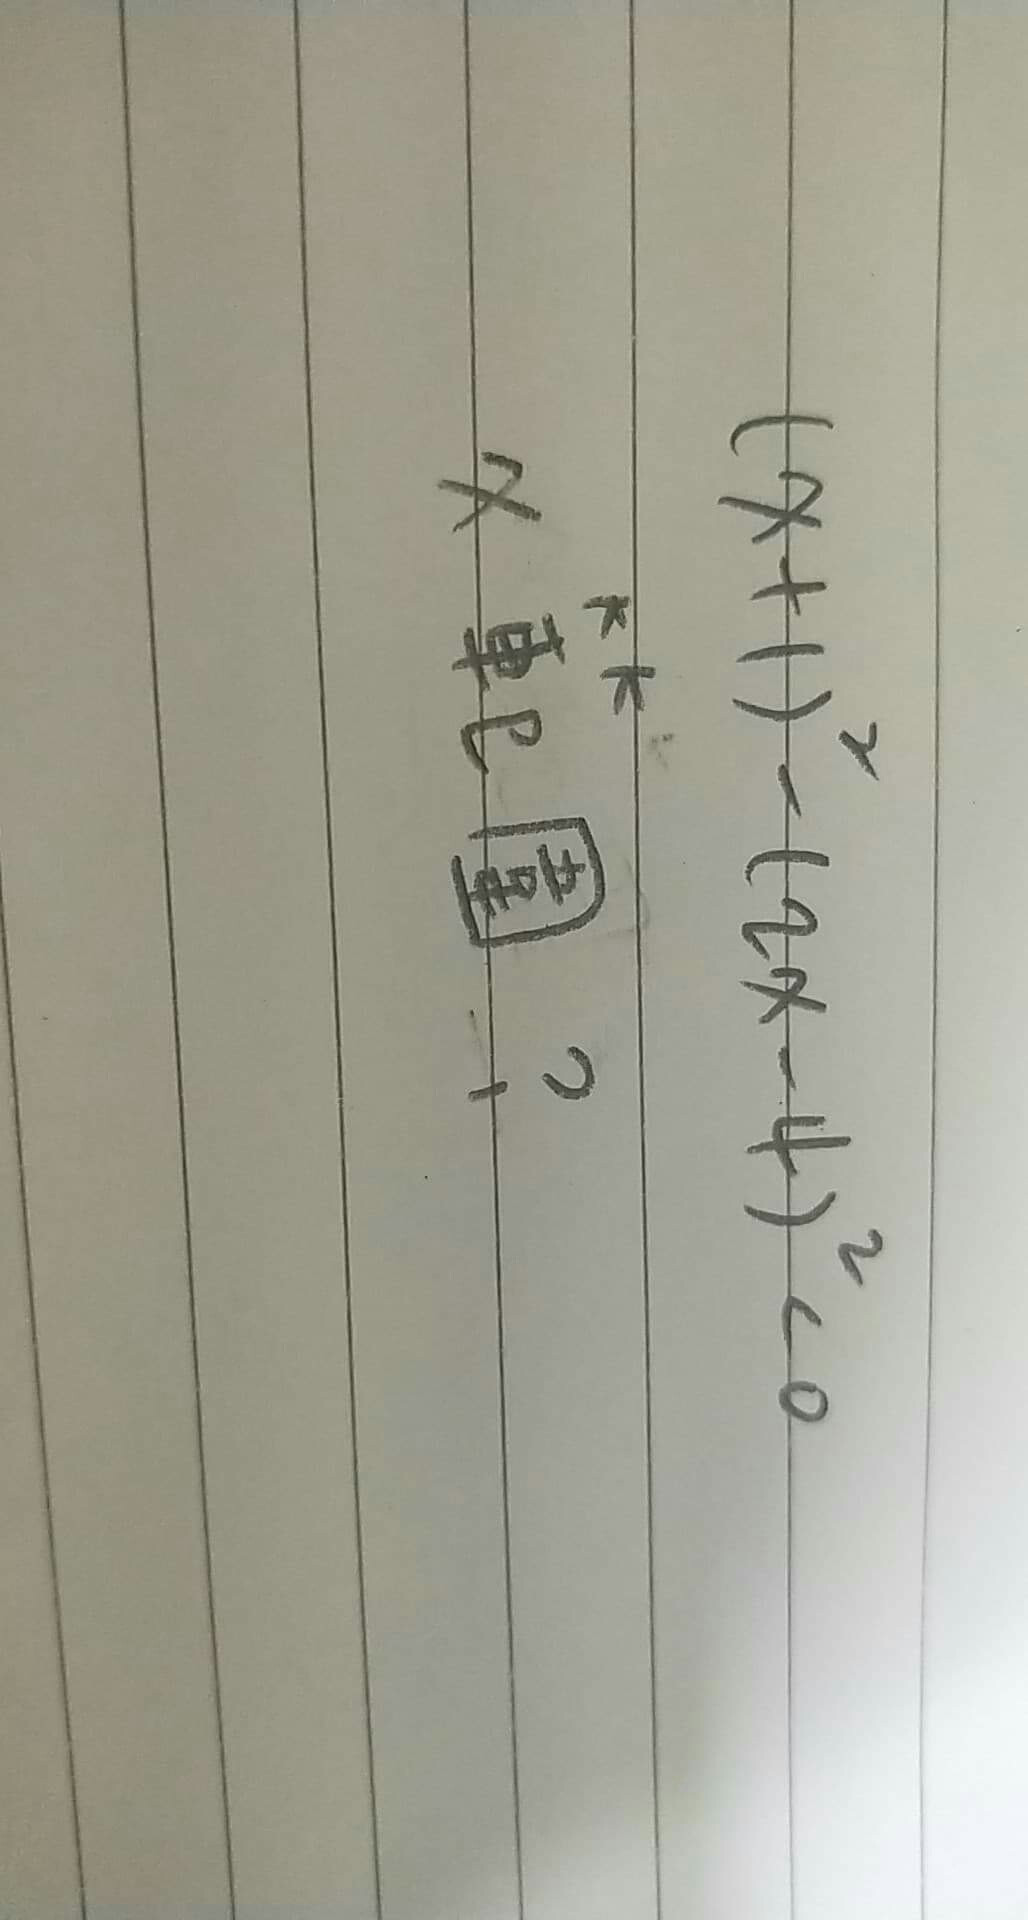 (x+1)²-(2x-4)²<0
x範圍?